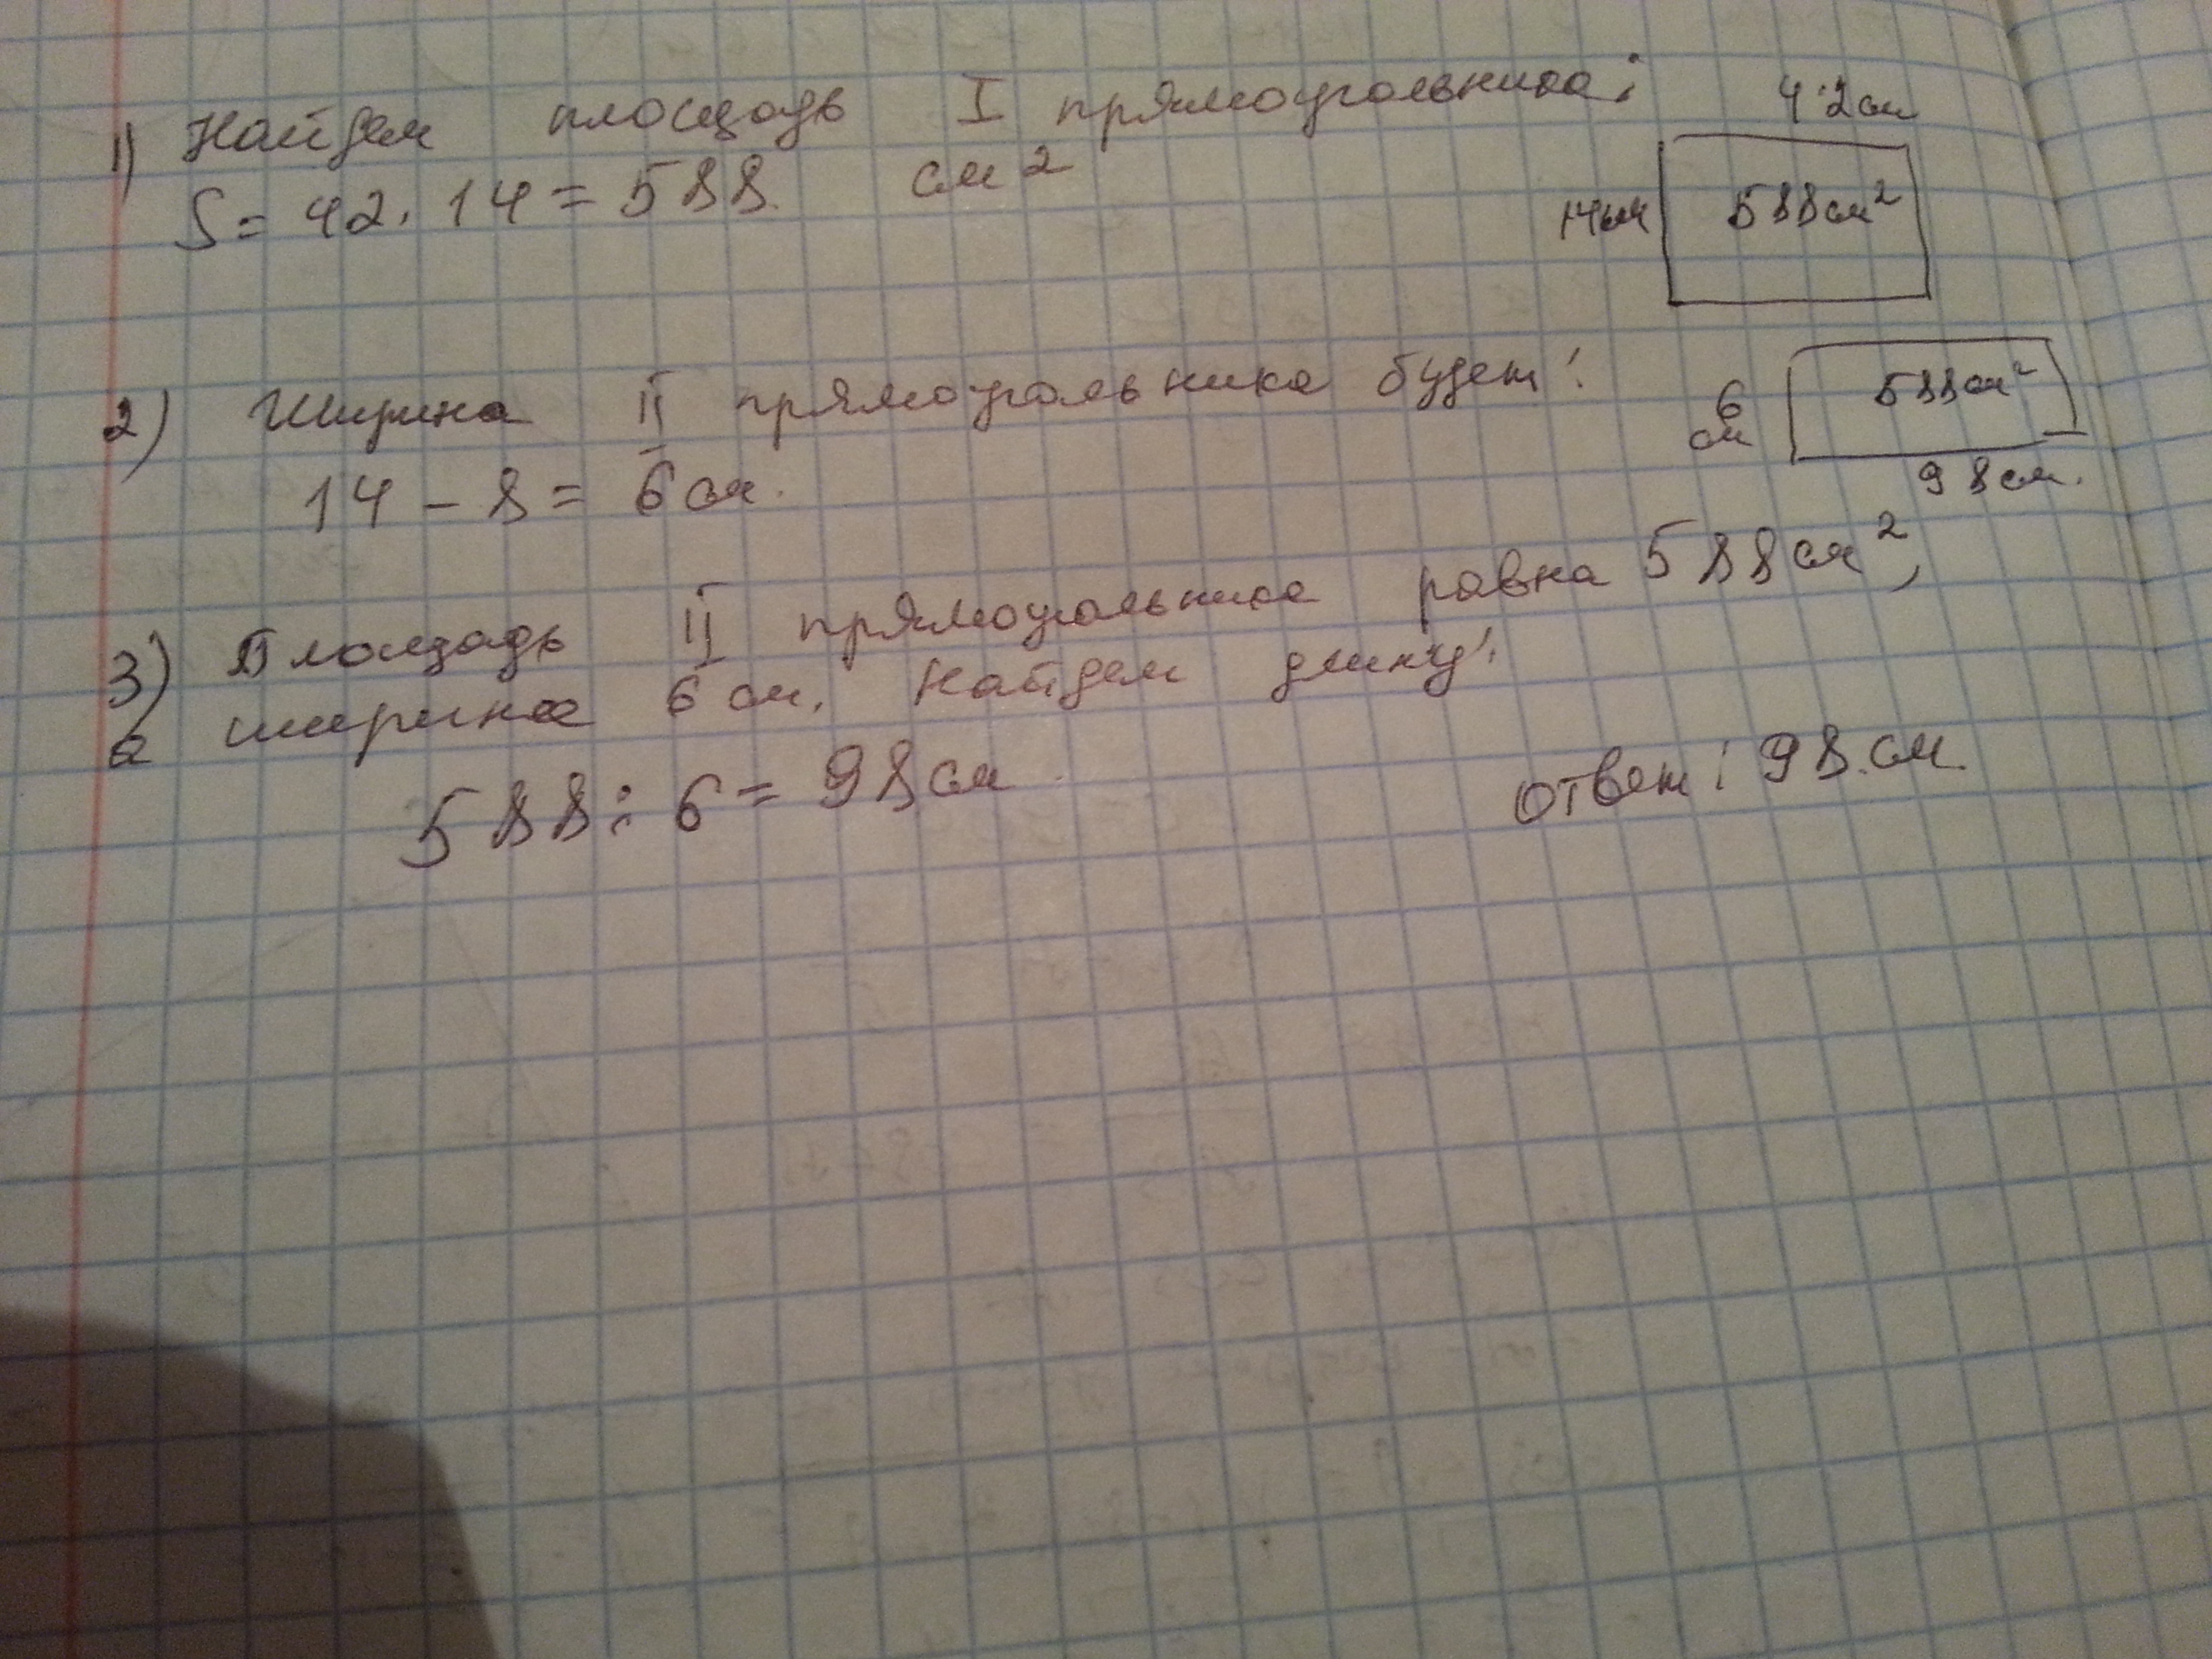 1) Найдем площадь I прямоугольника:
S = 42 · 14 = 588 см²
42см
14см
588см²
2) Ширина II прямоугольника будет:
14 - 8 = 6 см.
6 см
588см²
98см.
3) Площадь II прямоугольника равна 588 см²,
а ширина 6 см. Найдем длину:
588 : 6 = 98 см
Ответ: 98 см.